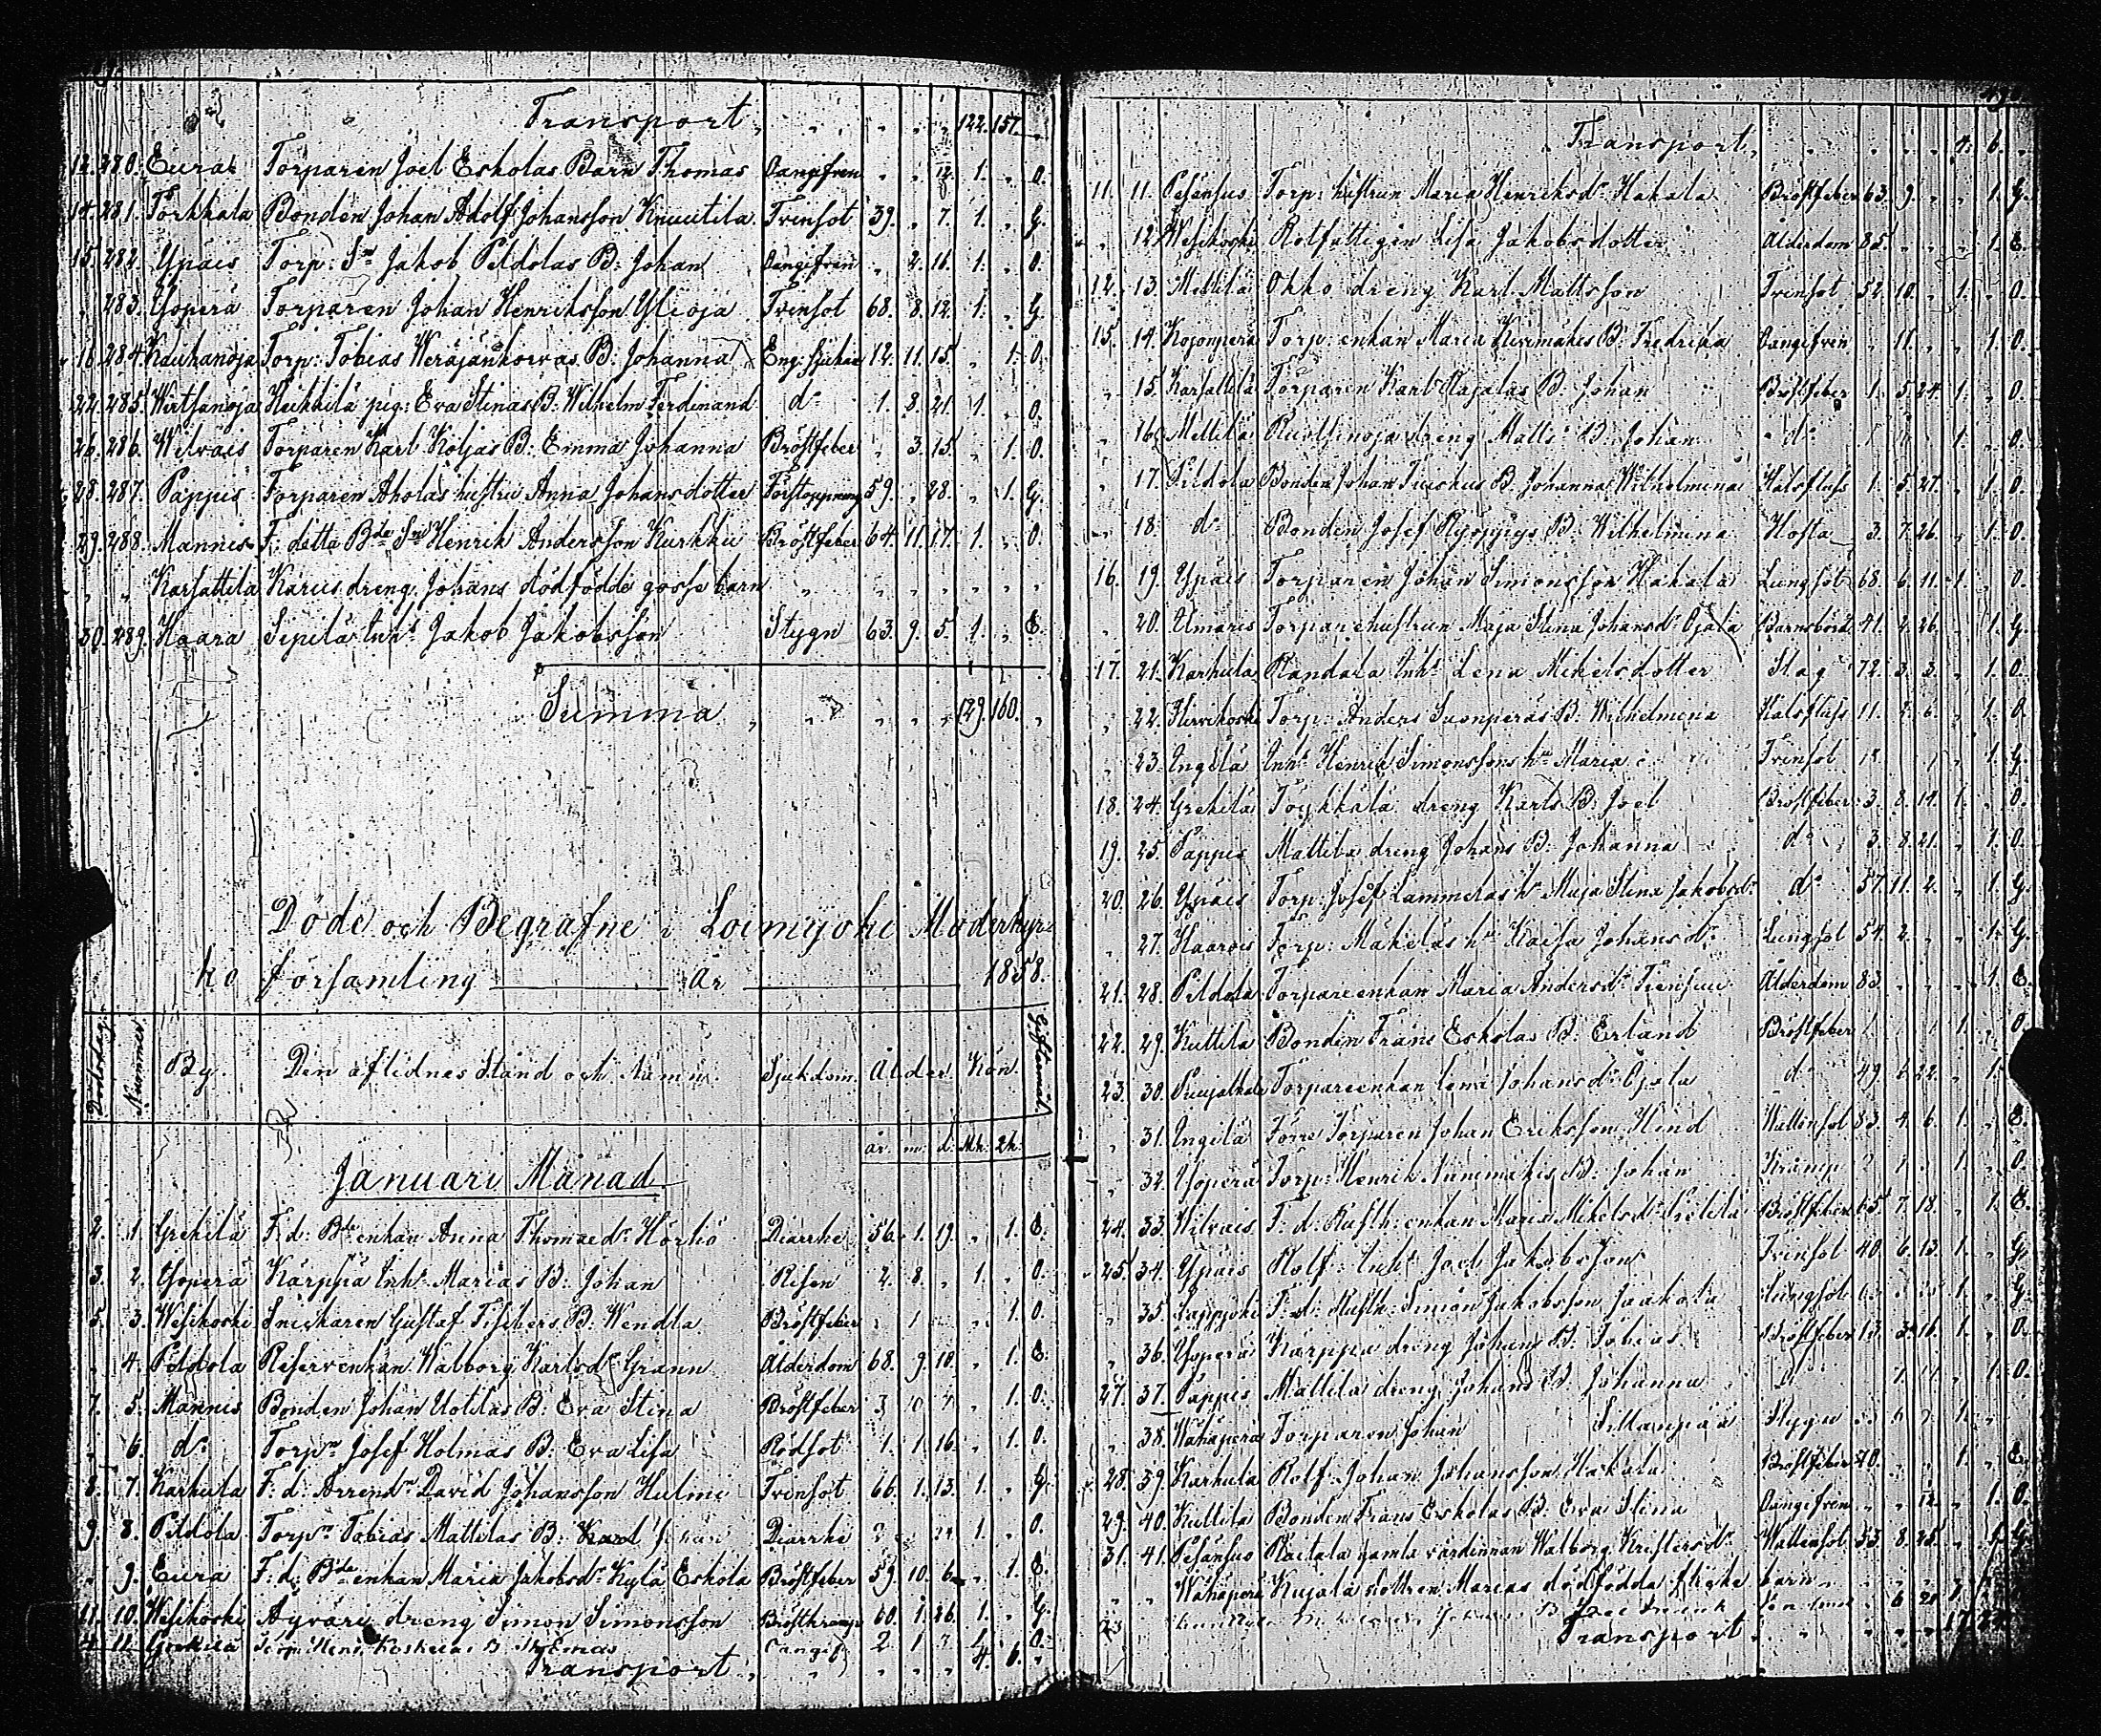 Transport „ „ „ „ „ 122. 157. „
12. 280. Eura Torparen Joel Eskolas Barn Thomas Oangifven „ „ 12. 1. „ O.
14. 281. Torkkala Bonden Johan Adolf Johansson Knuutila Tvinsot 39. „ 7. 1. „ G.
15. 282. Ypäis Torp: Sn Jakob Peldolas B: Johan Oangifven „ 2. 16. 1. „ O.
„ 283. Yöperä Torparen Johan Henriksson Ylioja Tvinsot 68. 8. 12. 1. „ G.
16. 284. Kauhanoja Torp: Tobias Weräjänkorvas B: Johanna Eng: sjukan 12. 11. 15. „ 1. O.
22. 285. Wirtsanoja Heikkilä pig: Eva Stinas B: Wilhelm Ferdinand do 1. 8. 21. 1. „ O.
26. 286. Wilvais Torparen Karl Koljas B: Emma Johanna Bröstfeber „ 3. 15. „ 1. O.
28. 287. Pappis Torparen Aholas hustru Anna Johansdotter Förstoppning 59. „ 28. „ 1. G.
29. 288. Mannis F: detta Bde Sn Henrik Andersson Kurkki Bröstfeber 64. 11. 17. 1. „ O.
„ „ Karsattila Karus dreng Johans dödfödde gosse barn „ „ „ „ „ „ „
30. 289. Haara Sipilä Inhs Jakob Jakobsson Stygn 63. 9. 5. 1. „ E.
Summa „ „ „ „ „ 129. 160. „
Döde och Begrafne i Loimijoki Moderkyr-
ko församling år 1858.
Dödsdag. Nummer By. Den aflidnes Stånd och Namn. Sjukdom. Ålder. Kön. Giftermål
år. m. d. Mk. Qk.
Januari Månad
2. 1. Grekilä F: d: Bde enkan Anna Thomaedr Hörhö Diarrhé 56. 1. 19. „ 1. E.
3. 2. Yöperä Kärppä Inhs Marias B: Johan Risen 2. 8. „ 1. „ O.
5. 3. Wesikoski Snickaren Gustaf Fischers B: Wendla Bröstfeber 1. O.
„ 4. Peldola Reservenkan Walborg Karlsdr Grann Ålderdom 68. 9. 10. „ 1. E.
7. 5. Mannis Bonden Johan Uotilas B: Eva Stina Bröstfeber 3 „ 1. O.
„ 6. do Torpn Josef Holmas B: Eva Lisa Rödsot 1. 1. 16. „ 1. O.
8. 7. Karhula F: d: Arrendr David Johansson Hulmi Tvinsot 66. 1. 13. 1. „ G.
9. 8. Peldola Torpn Tobias Mattilas B: Karl Johan Diarrhé 1. „ O.
„ 9. Eura F: d: Bde enkan Maria Jakobsdr Kylä Eskola Bröstfeber 59. 10. 6. „ 1. E.
11. 10. Wesikoski Äyväri dreng Simon Simonsson Bröstkramp 60. 1. 26. 1. „ G.
Grekilä Torp: Henr: B: Oangif: 2. 1. O.
Transport „ „ „ „ „ 4. 6. „
Transport „ „ „ „ „ 4. 6. „
11. 11. Pesänsuo Torp: hustrun Maria Henriksdr Hakala Bröstfeber 63. 9. „ „ 1. G.
„ 12. Wesikoski Rotfattigen Lisa Jakobsdotter Ålderdom 85. „ „ „ 1. E.
12. 13. Mellilä Okko dreng Karl Mattsson Tvinsot 52. 10. „ 1. „ O.
15. 14. Kojonperä Torp: enkan Maria Kivimäkis B: Fredrika Oangifven „ 11. „ „ 1. O.
„ 15. Karsattila Torparen Karl Majalas B: Johan Bröstfeber 1. 5. 24. 1. „ O.
„ 16. Mellilä dreng Matts B: Johan do 1. „ O.
„ 17. Peldola Bonden Johan Tuiskus B: Johanna Wilhelmina Halsfluss 1. 5. 27. „ 1. O.
„ 18. do Bonden Josef Ryöppys B: Wilhelmina Hosta 3. 7. 26. „ 1. O.
16. 19. Ypäis Torparen Johan Simonsson Hakala Lungsot 68. 6. 11. 1. „ O.
„ 20. Almaris Torparehustrun Maja Stina Johansdr Ojala Barnsbörd 41. 2. 26. „ 1. G.
17. 21. Karhula Randala Inhs Lena Mikelsdotter Slag 72. 3. 3. „ 1. O.
„ 22. Hirvikoski Torp: Anders Suonperäs B: Wilhelmina Halsfluss 11. 2. 6. „ 1. O.
„ 23. Ingilä Inhs Henrik Simonssons hu Maria Tvinsot 1. G.
18. 24. Grekilä Töykkälä dreng Karls B: Joel Bröstfeber 3. 8. 14. 1. „ O.
19. 25. Pappis Mattila dreng Johans B: Johanna do 3. 8. 21. „ 1. O.
20. 26. Ypäis Torp: Josef Lammelas hu Maja Stina Jakobsdr do 57. 11. 2. „ 1. G.
„ 27. Haarois Torp: Mäkeläs hu Kaisa Johansdr Lungsot 54. 2. „ „ 1. G.
21. 28. Peldola Torpareenkan Maria Andersdr Ålderdom 83. „ „ „ 1. E.
22. 29. Kuttila Bonden Frans Eskolas B: Erland Bröstfeber 1. „ O.
23. 30. Puujalkala Torpareenkan Lena Johansdr Ojala do 49. 6. 22. „ 1.
„ 31. Ingilä Förre Torparen Johan Eriksson Hind Wattensot 83. 4. 6. 1. „ E.
„ 32. Yöperä Torp: Henrik Nunimäkis B: Johan Kramp 1. „ O.
24. 33. Wilvais F: d: Rusth: enkan Maria Mikelsdr Bröstfeber 65. 7. 18. „ 1. E.
25. 34. Ypäis Rotf: Inhs Joel Jakobsson Tvinsot 40. 6. 13. 1. „ G.
„ 35. F: d: Rusth: Simon Jakobsson Jaakola Lungsot 1. „ G.
„ 36. Yöperä Kärppä dreng Johans B: Tobias Bröstfeber 13. 3. 16. 1. „ O.
27. 37. Pappis Mattila dreng Johans B: Johanna 1. O.
„ 38. Wähäperä Torparen Johan Sillanpää Stygn 1. „
28. 39. Karhula Rotf: Johan Johansson Hakala Bröstfeber 70. „ „ 1. „ E.
29. 40. Kuttila Bonden Frans Eskolas B: Eva Stina Oangifven „ „ 12. „ 1. O.
31. 41. Pesänsuo Raitala gamla värdinnan Walborg Kristersdr Wattensot 53. 8. 25. „ 1. G.
„ „ Wähäperä Kujala dottren Marias dödfödda flicke barn „
Transport „ „ „ „ „